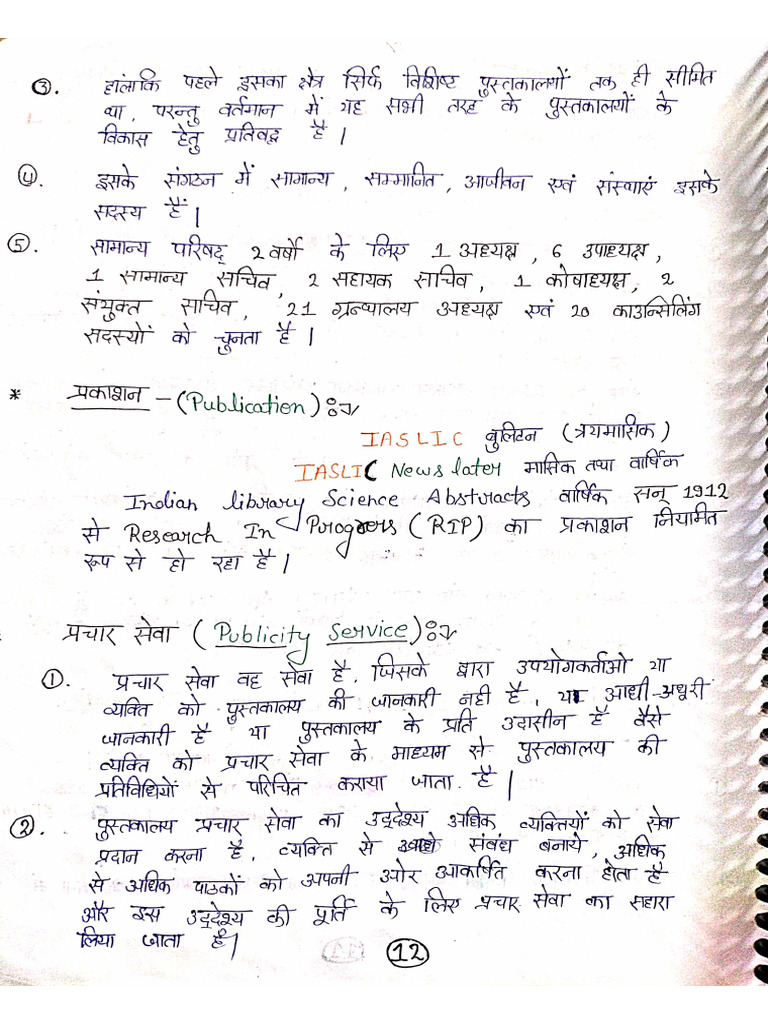 ③. हालांकि पहले इसका क्षेत्र सिर्फ विशिष्ट पुस्तकालयों तक ही सीमित
था, परन्तु वर्तमान में यह सभी तरह के पुस्तकालयों के
विकास हेतु प्रतिबद्ध है।
④. इसके संगठन में सामान्य, सम्मानित, आजीवन एवं संस्थाएं इसके
सदस्य हैं।
⑤. सामान्य परिषद् 2 वर्षो के लिए 1 अध्यक्ष, 6 उपाध्यक्ष,
1 सामान्य सचिव, 2 सहायक सचिव, 1 कोषाध्यक्ष, 2
संयुक्त सचिव, 21 ग्रन्थालय अध्यक्ष एवं 20 काउन्सिलिंग
सदस्यों को चुनता है।
* प्रकाशन - (Publication) :-
IASLIC बुलिटन (त्रयमासिक)
IASLIC News later मासिक तथा वार्षिक
Indian library Science Abstracts वार्षिक सन् 1912
से Research In Progress (RIP) का प्रकाशन नियमित
रूप से हो रहा है।
प्रचार सेवा (Publicity Service) :-
①. प्रचार सेवा वह सेवा है, जिसके द्वारा उपयोगकर्ताओ या
व्यक्ति को पुस्तकालय की जानकारी नही है, या आधी-अधूरी
जानकारी है या पुस्तकालय के प्रति उदासीन है वैसे
व्यक्ति को प्रचार सेवा के माध्यम से पुस्तकालय की
प्रतिविधियों से परिचित कराया जाता है।
②. पुस्तकालय प्रचार सेवा का उद्देश्य अधिक व्यक्तियों को सेवा
प्रदान करना है, व्यक्ति से संबंध बनाये, अधिक
से अधिक पाठकों को अपनी ओर आकर्षित करना होता है
और इस उद्देश्य की पूर्ति के लिए प्रचार सेवा का सहारा
लिया जाता है।
12